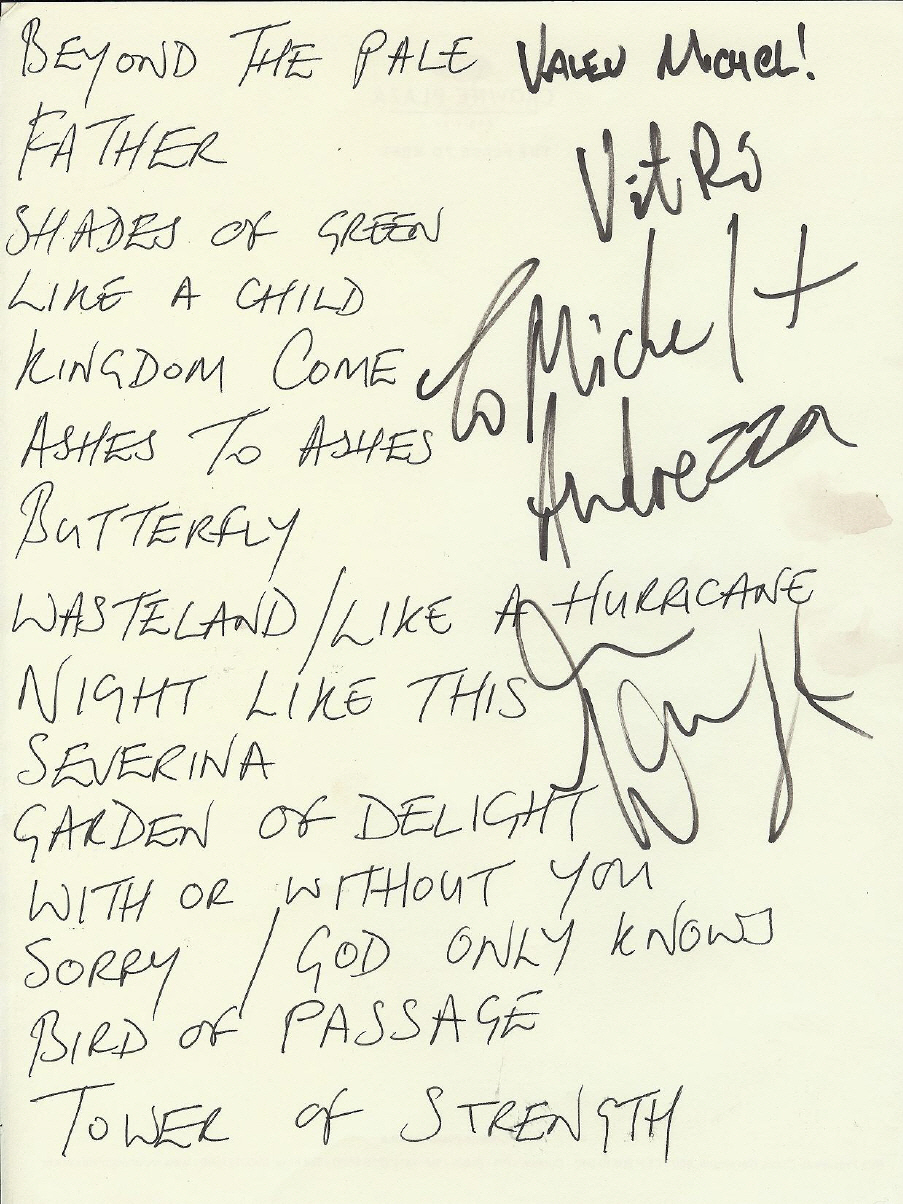 BEYOND THE PALE VALEU MICHEL!
FATHER
VitRó
SHADES OF GREEN
LIKE A CHILD
To Michel +
KINGDOM COME
ASHES TO ASHES
Andrezza
BUTTERFLY
WASTELAND / LIKE A HURRICANE
NIGHT LIKE THIS
SEVERINA
GARDEN OF DELIGHT
WITH OR WITHOUT YOU
SORRY / GOD ONLY KNOWS
BIRD OF PASSAGE
TOWER OF STRENGTH